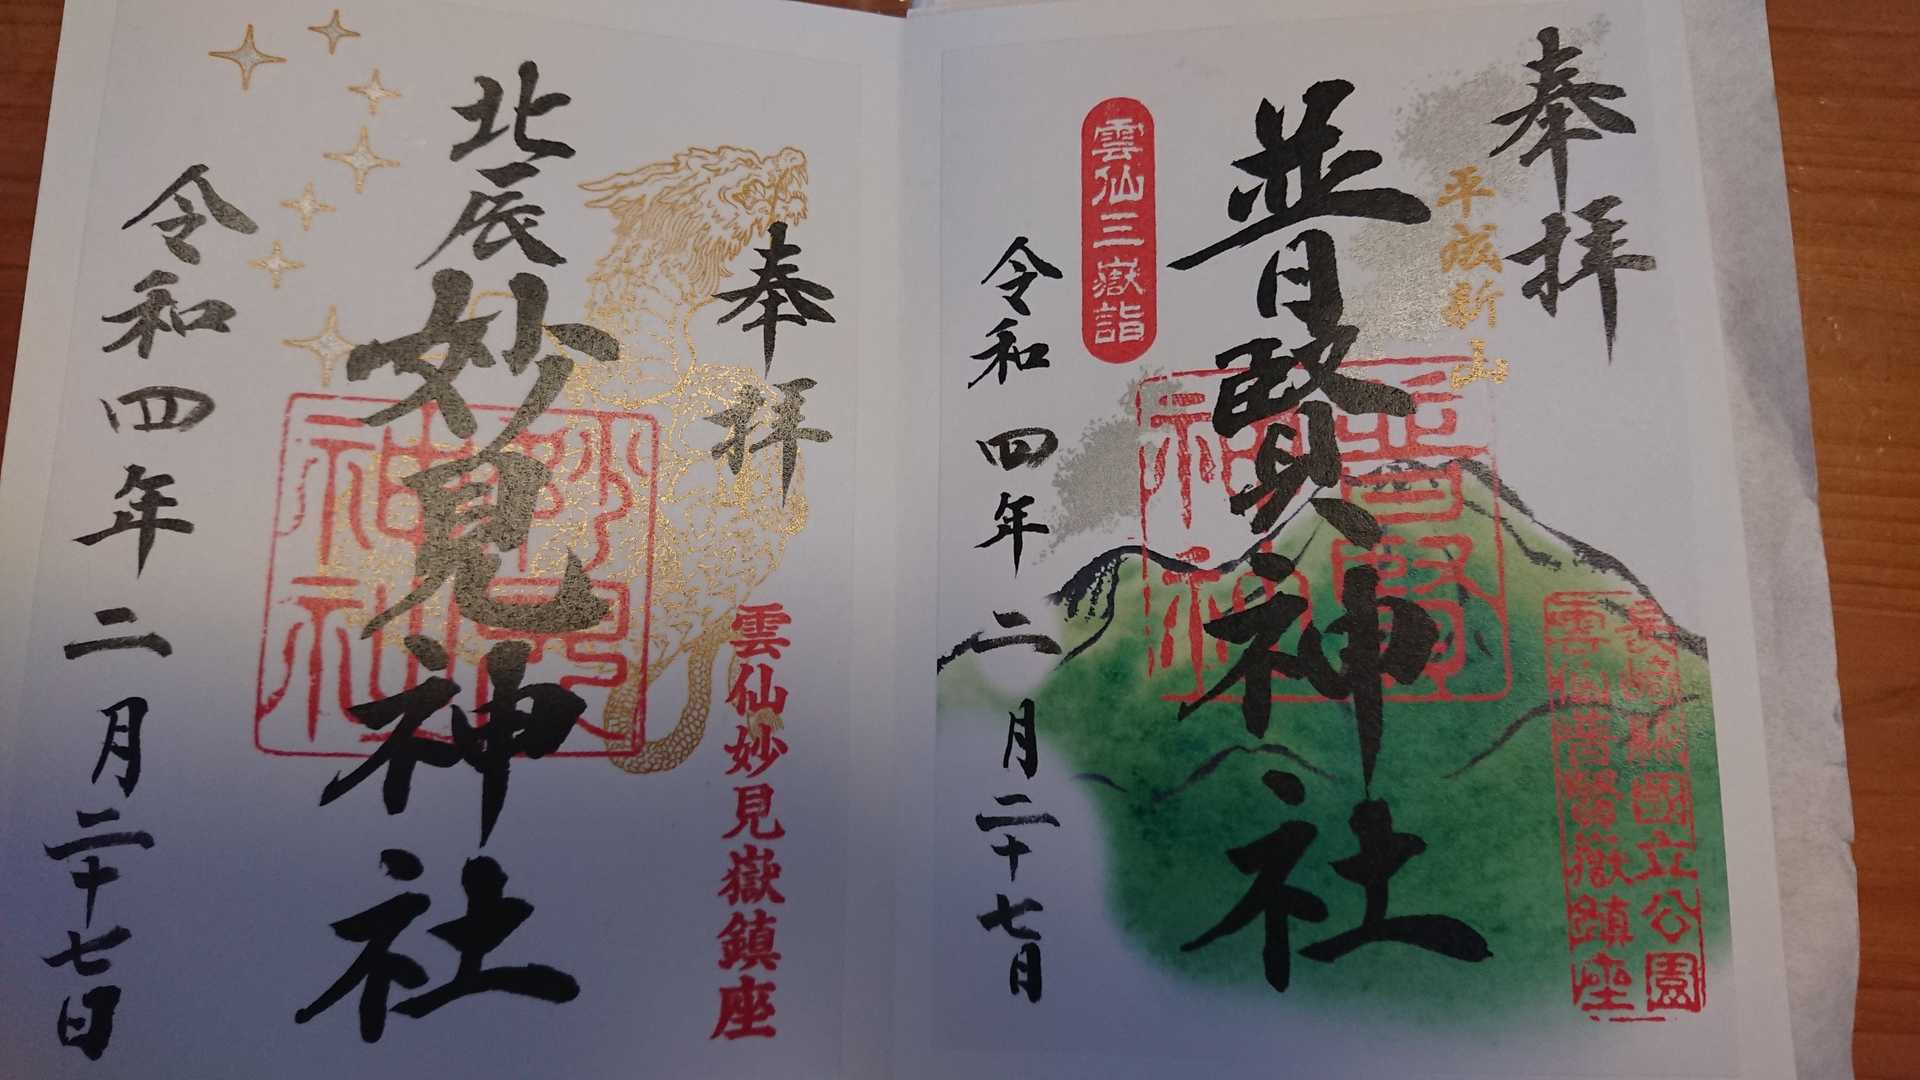 奉拝
平成新山
普賢神社
普賢神社
雲仙三嶽詣
令和四年二月二十七日
長崎県国立公園
雲仙普賢嶽鎮座
奉拝
北辰
妙見神社
妙見神社
雲仙妙見嶽鎮座
令和四年二月二十七日